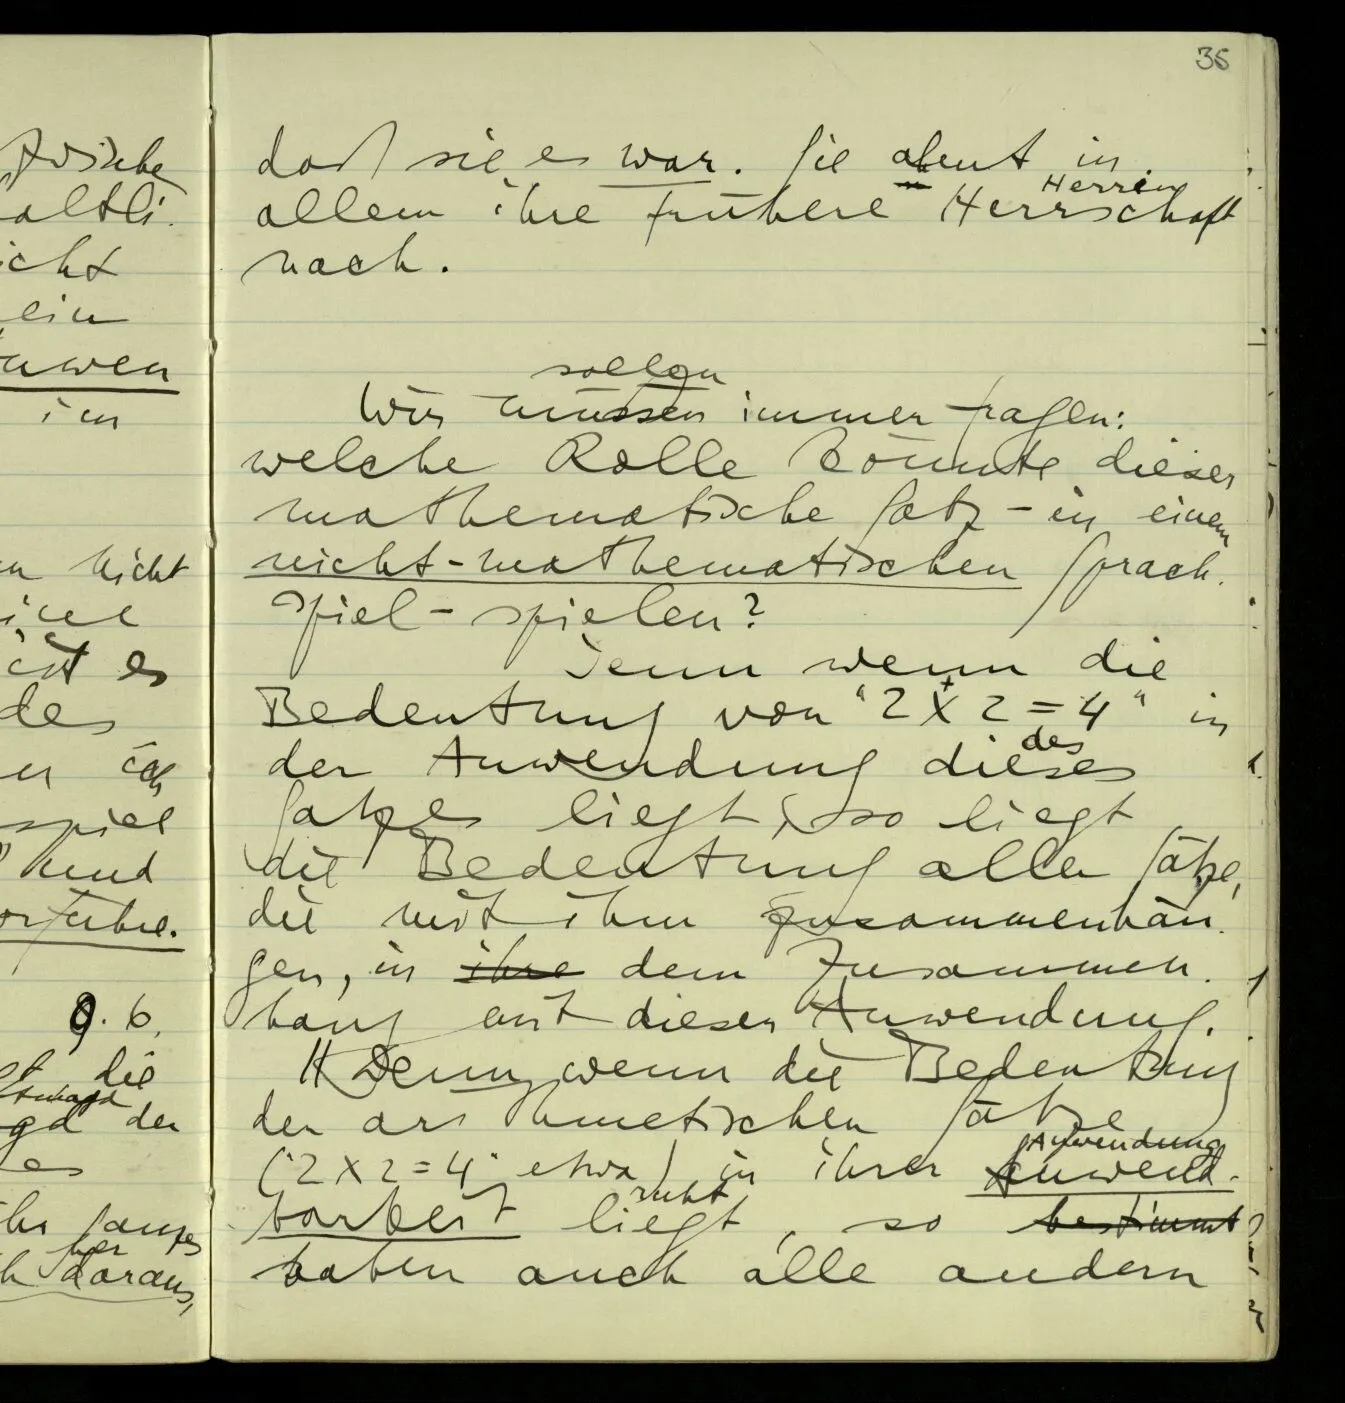 35
daß sie es war. Sie ahmt in
Herrin
allem ihre frühere Herrschaft
nach.
sollen
Wir müssen immer fragen:
welche Rolle könnte dieser
mathematische Satz – in einem
nicht-mathematischen Sprach-
spiel – spielen?
Denn wenn die
Bedeutung von “2 x 2 = 4” in
des
der Anwendung dieses
Satzes liegt, so liegt
die Bedeutung aller Sätze,
die mit ihm zusammenhän-
gen, in ihre dem Zusammen-
hang mit dieser Anwendung.
Denn, wenn die Bedeutung
der arithmetischen Sätze
Anwendung
(“2 x 2 = 4” etwa) in ihrer Anwend-
ruht
barkeit liegt, so bestimmt
haben auch alle andern
zwische
altli
icht
ein
auwen
im
n nicht
ine
ist es
des
er ich
spiel
und
orführe.
9.6.
die
gd der
es
ihr ganzes
her
h daraus,